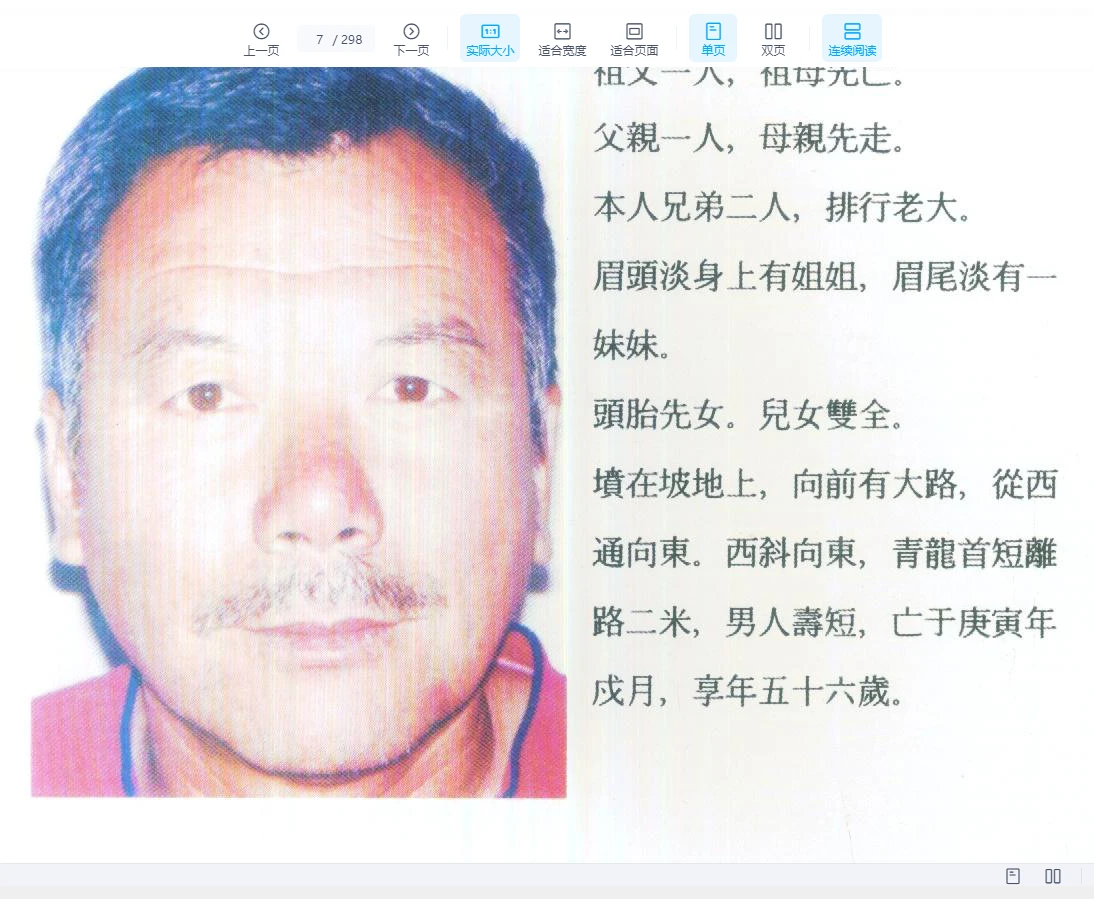 上一页
7 / 298
下一页
1:1
实际大小
适合宽度
适合页面
单页
双页
连续阅读
祖父一人，祖母先亡。
父親一人，母親先走。
本人兄弟二人，排行老大。
眉頭淡身上有姐姐，眉尾淡有一
妹妹。
頭胎先女。兒女雙全。
墳在坡地上，向前有大路，從西
通向東。西斜向東，青龍首短離
路二米，男人壽短，亡于庚寅年
戍月，享年五十六歲。